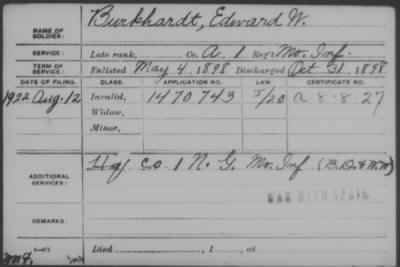 NAME OF SOLDIER: Burkhardt, Edward W.
SERVICE: Late rank, Co. A. 1 Reg't Mo. Inf.
TERM OF SERVICE: Enlisted May 4, 1898 Discharged Oct 31, 1898
DATE OF FILING. CLASS. APPLICATION NO. LAW. CERTIFICATE NO.
1922 Aug. 12 Invalid, 1470743 5/20 a-8-8-27
Widow,
Minor,
ADDITIONAL SERVICES: Co. 1 N. G. Mo. Inf (B.D. & W.W)
WAR WITH SPAIN
REMARKS:
Died , 1 , at